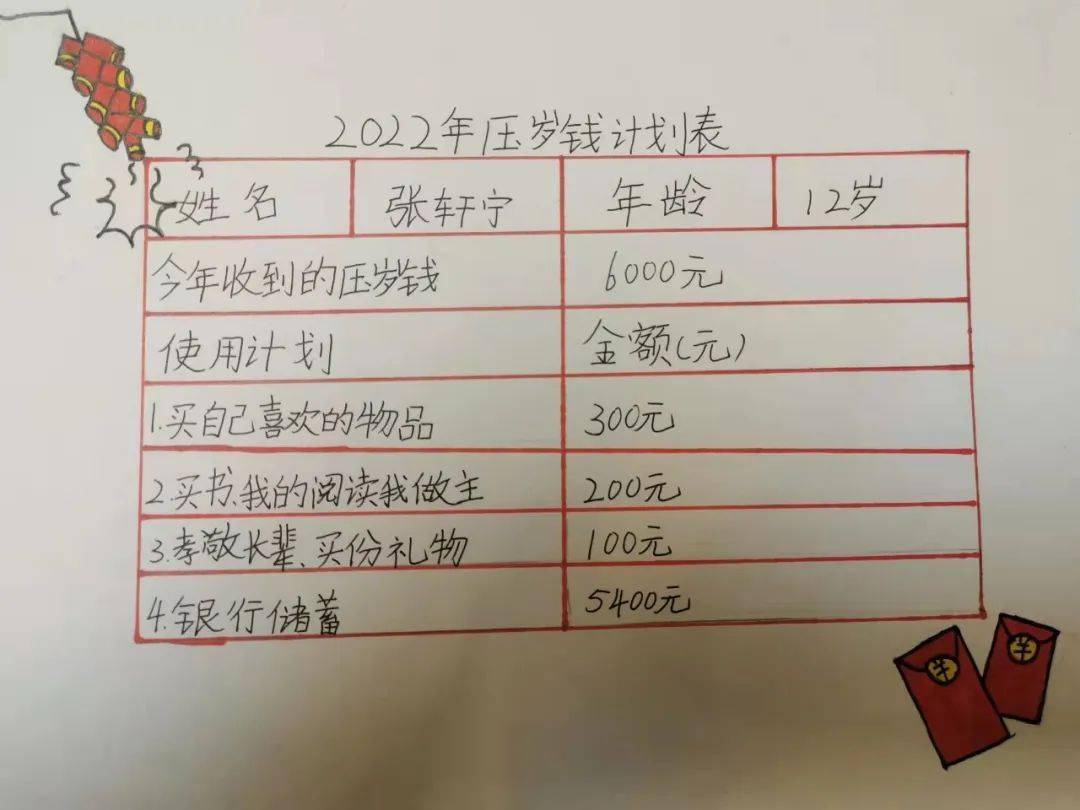 2022年压岁钱计划表
姓名 张轩宁 年龄 12岁
今年收到的压岁钱 6000元
使用计划 金额(元)
1.买自己喜欢的物品 300元
2.买书、我的阅读我做主 200元
3.孝敬长辈、买份礼物 100元
4.银行储蓄 5400元